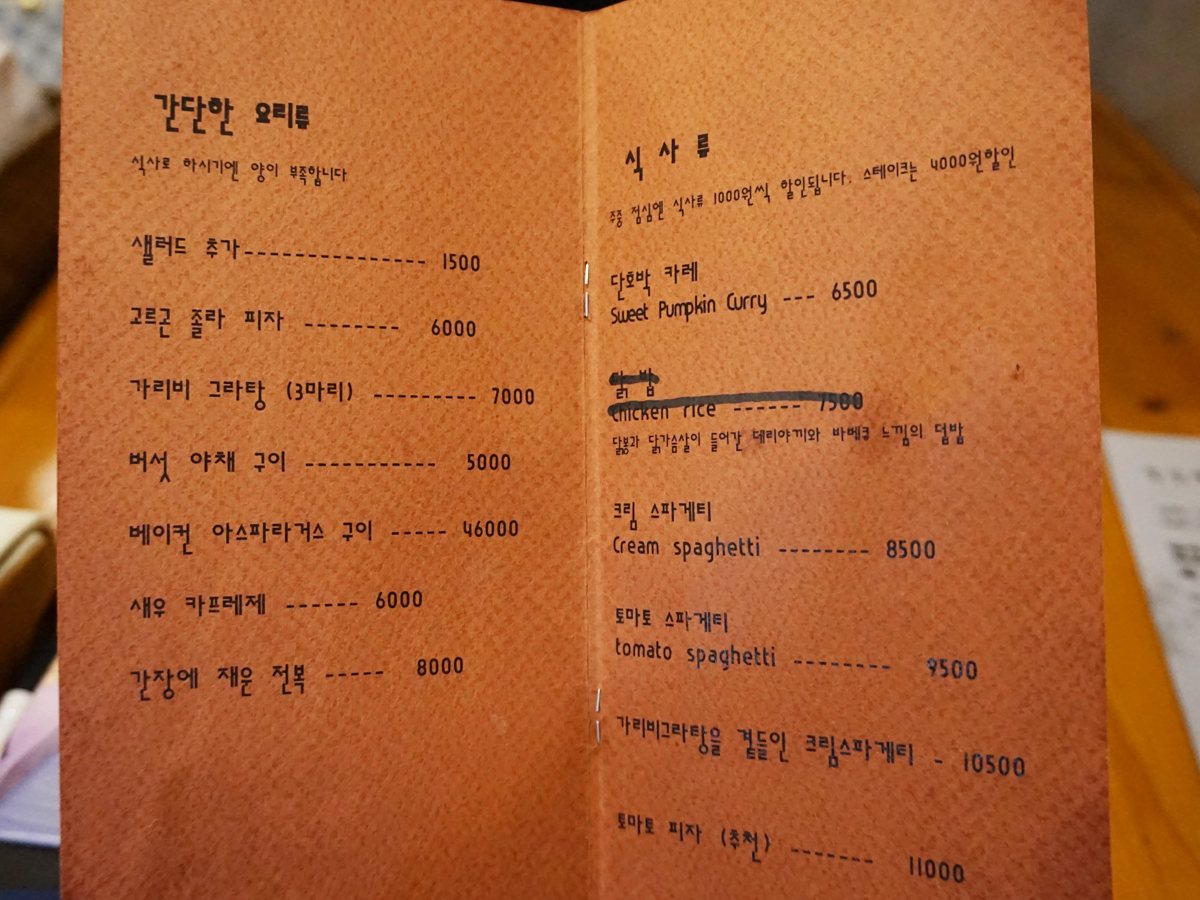 간단한 요리류
식사로 하시기엔 양이 부족합니다
샐러드 추가--------------- 1500
고르곤 졸라 피자 -------- 6000
가리비 그라탕 (3마리) --------- 7000
버섯 야채 구이 ----------- 5000
베이컨 아스파라거스 구이 ----- 46000
새우 카프레제 ------ 6000
간장에 재운 전복 ----- 8000
식 사 류
주중 점심엔 식사류 1000원씩 할인됩니다. 스테이크는 4000원할인
단호박 카레
Sweet Pumpkin Curry --- 6500
닭 밥
chicken rice ------ 7500
닭봉과 닭가슴살이 들어간 데리야끼와 바베큐 느낌의 덮밥
크림 스파게티
Cream spaghetti -------- 8500
토마토 스파게티
tomato spaghetti --------- 9500
가리비그라탕을 곁들인 크림스파게티 - 10500
토마토 피자 (추천) ------- 11000